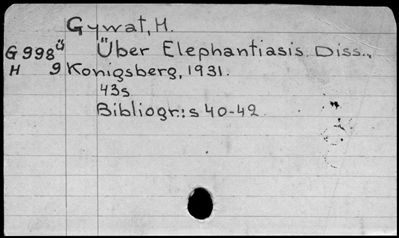 Gywat, H.
G998ü Über Elephantiasis. Diss.,
H 9 Konigsberg, 1931.
43s
Bibliogr.: s 40-42.